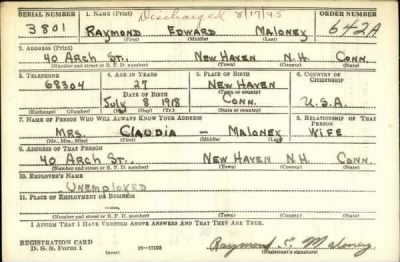 SERIAL NUMBER 1. NAME (Print) Discharged 8/17/45 ORDER NUMBER
3801 RAYMOND EDWARD MALONEY 642A
(First) (Middle) (Last)
2. ADDRESS (Print)
40 ARCH ST. NEW HAVEN N.H. CONN.
(Number and street or R. F. D. number) (Town) (County) (State)
3. TELEPHONE 4. AGE IN YEARS 5. PLACE OF BIRTH 6. COUNTRY OF CITIZENSHIP
68304 NEW HAVEN
DATE OF BIRTH (Town)
JULY 8 1918 CONN. U.S.A.
(Exchange) (Number) (Mo.) (Day) (Yr.) (State or country)
7. NAME OF PERSON WHO WILL ALWAYS KNOW YOUR ADDRESS 8. RELATIONSHIP OF THAT PERSON
MRS. CLAUDIA — MALONEY WIFE
(Mr., Mrs., Miss) (First) (Middle) (Last)
9. ADDRESS OF THAT PERSON
40 ARCH ST.. NEW HAVEN N.H. CONN.
(Number and street or R. F. D. number) (Town) (County) (State)
10. EMPLOYER'S NAME
UNEMPLOYED
11. PLACE OF EMPLOYMENT OR BUSINESS
(Number and street or R. F. D. number) (Town) (County) (State)
I AFFIRM THAT I HAVE VERIFIED ABOVE ANSWERS AND THAT THEY ARE TRUE.
REGISTRATION CARD
D. S. S. Form 1 (over) 16—17105 Raymond E Maloney
(Registrant's signature)